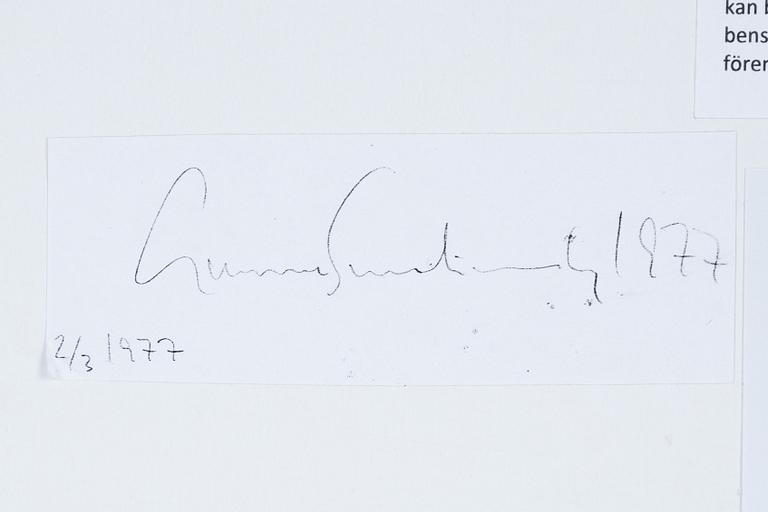 kan b
bens
fören
Gunnar Smoliansky 1977
2/3 1977